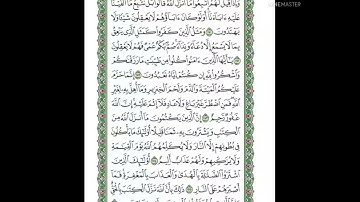 Made with KINEMASTER
وَإِذَا قِيلَ لَهُمُ ٱتَّبِعُوا۟ مَآ أَنزَلَ ٱللَّهُ قَالُوا۟ بَلْ نَتَّبِعُ مَآ أَلْفَيْنَا
عَلَيْهِ ءَابَآءَنَآ أَوَلَوْ كَانَ ءَابَآؤُهُمْ لَا يَعْقِلُونَ شَيْـًٔا وَلَا
يَهْتَدُونَ ١٧٠ وَمَثَلُ ٱلَّذِينَ كَفَرُوا۟ كَمَثَلِ ٱلَّذِى يَنْعِقُ
بِمَا لَا يَسْمَعُ إِلَّا دُعَآءً وَنِدَآءً صُمٌّۢ بُكْمٌ عُمْىٌ فَهُمْ لَا يَعْقِلُونَ
١٧١ يَـٰٓأَيُّهَا ٱلَّذِينَ ءَامَنُوا۟ كُلُوا۟ مِن طَيِّبَـٰتِ مَا رَزَقْنَـٰكُمْ
وَٱشْكُرُوا۟ لِلَّهِ إِن كُنتُمْ إِيَّاهُ تَعْبُدُونَ ١٧٢ إِنَّمَا حَرَّمَ
عَلَيْكُمُ ٱلْمَيْتَةَ وَٱلدَّمَ وَلَحْمَ ٱلْخِنزِيرِ وَمَآ أُهِلَّ بِهِۦ لِغَيْرِ
ٱللَّهِ فَمَنِ ٱضْطُرَّ غَيْرَ بَاغٍ وَلَا عَادٍ فَلَآ إِثْمَ عَلَيْهِ إِنَّ ٱللَّهَ
غَفُورٌ رَّحِيمٌ ١٧٣ إِنَّ ٱلَّذِينَ يَكْتُمُونَ مَآ أَنزَلَ ٱللَّهُ مِنَ
ٱلْكِتَـٰبِ وَيَشْتَرُونَ بِهِۦ ثَمَنًا قَلِيلًا أُو۟لَـٰٓئِكَ مَا يَأْكُلُونَ
فِى بُطُونِهِمْ إِلَّا ٱلنَّارَ وَلَا يُكَلِّمُهُمُ ٱللَّهُ يَوْمَ ٱلْقِيَـٰمَةِ
وَلَا يُزَكِّيهِمْ وَلَهُمْ عَذَابٌ أَلِيمٌ ١٧٤ أُو۟لَـٰٓئِكَ ٱلَّذِينَ
ٱشْتَرَوُا۟ ٱلضَّلَـٰلَةَ بِٱلْهُدَىٰ وَٱلْعَذَابَ بِٱلْمَغْفِرَةِ فَمَآ
أَصْبَرَهُمْ عَلَى ٱلنَّارِ ١٧٥ ذَٰلِكَ بِأَنَّ ٱللَّهَ نَزَّلَ ٱلْكِتَـٰبَ بِٱلْحَقِّ